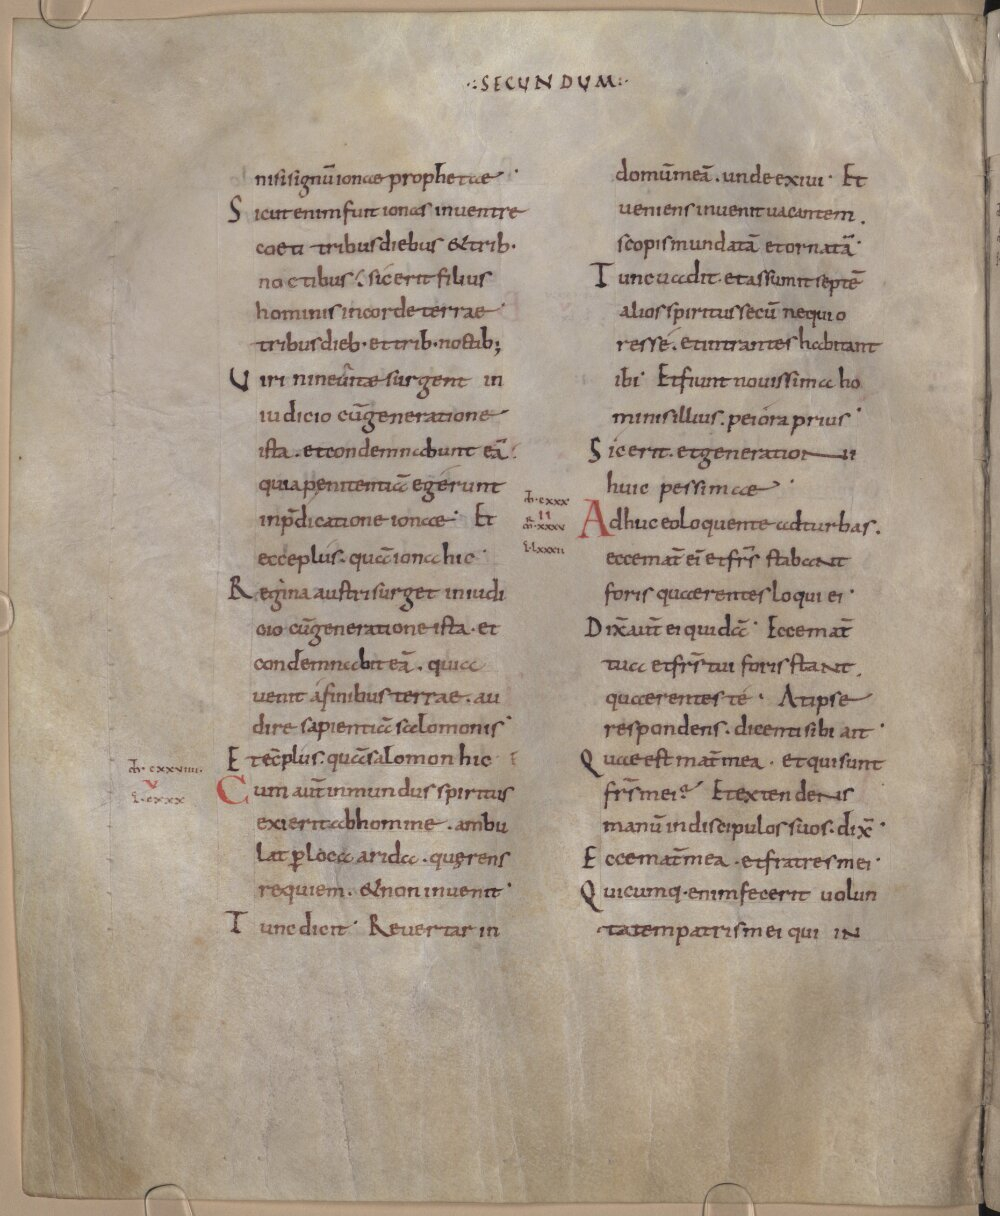 ·:SECUNDUM:·
nisi signū ionae prophetae·
Sicut enim fuit ionas inventre
coeti tribus diebus & trib·
noctibus; sic erit filius
hominis in corde terrae
tribus dieb· et trib· noctib;
Viri nineuitae surgent in
iudicio cū generatione
ista. et condemnabunt eā.
quia penitentiā egerunt
in p̄dicatione ionae· Et
ecce plus. quā iona hic·
Regina austri surget in iudi
cio cū generatione ista. et
condemnabit eā. quia
venit a finibus terrae. au
dire sapientiā salomonis·
Et ecc̄ plus. quā salomon hic
ꝳ· cxxviiii.
v
L· cxxx
Cum aut̄ inmundus spiritus
exierit ab homine. ambu
lat ꝑ loca arida. quęrens
requiem. & non invenit·
Tunc dicit· Revertar in
domū meā. unde exivi· Et
veniens invenit vacantem.
scopis mundatā et ornatā·
Tunc vadit. et assumit septē
alios spiritus secū nequio
res se. et intrantes habitant
ibi· Et fiunt novissima ho
minis illius. peiora prius·
Sic erit. et generationi
huic pessimae·
ꝳ· cxxx
II
ꝳ· xxxv
L· lxxxii
Adhuc eo loquente ad turbas.
ecce mat̄ ei et fr̄s stabant
foris quaerentes loqui ei·
Dix̄ aut̄ ei quidā· Ecce mat̄
tua et fr̄s tui foris stant.
quaerentes te· At ipse
respondens. dicenti sibi ait·
Quae est mat̄ mea. et qui sunt
fr̄s mei? Et extendens
manū in discipulos suos. dix̄·
Ecce mat̄ mea. et fratres mei·
Quicumq· enim fecerit volun
tatem patris mei qui in